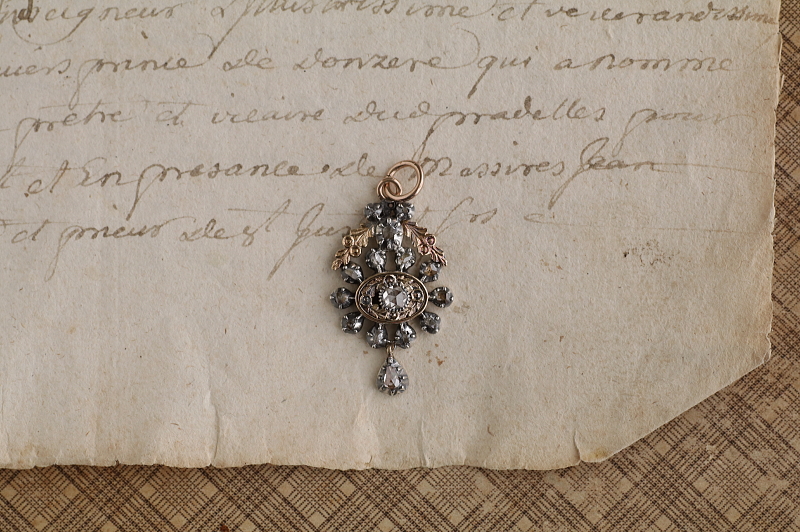 seigneur Illustrissime et venerandissime
prince de donzere qui a nomme
prêtre et vicaire dud pradelles pour
et En presance de Messires Jean
et prieur de st